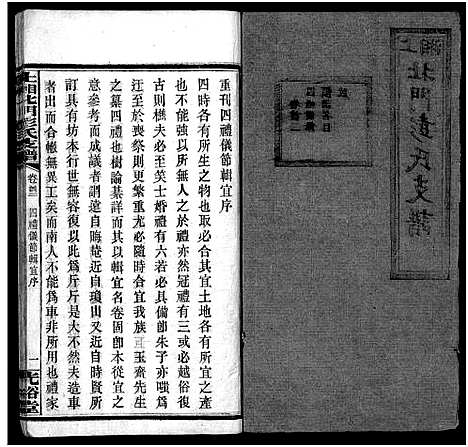 上湘北門彭氏支譜
重刊四禮儀節輯宜序
四時各有所生之物也取合其宜土地各有所宜之產
也不必其備惟禮亦然冠禮有三或必越俗復
古則樵夫必至笑士婚禮有六若必具備卽朱子亦嗟為
迂至於喪祭則更繁重尤必隨時合宜我族玉齋先生
之纂四禮也樹論綦詳而其以輯宜名卷固卽本從宜之
意參考而成議者謂遠自晦菴近自瓊山又近自時賢所
訂者具有坊本行世無容複衍以此為斤斤是大不然夫造車
者出而合轍無異工矣而南人不能為車非所用也禮家
上湘北門彭氏支譜
卷三
四禮儀節輯宜序
一
光裕堂